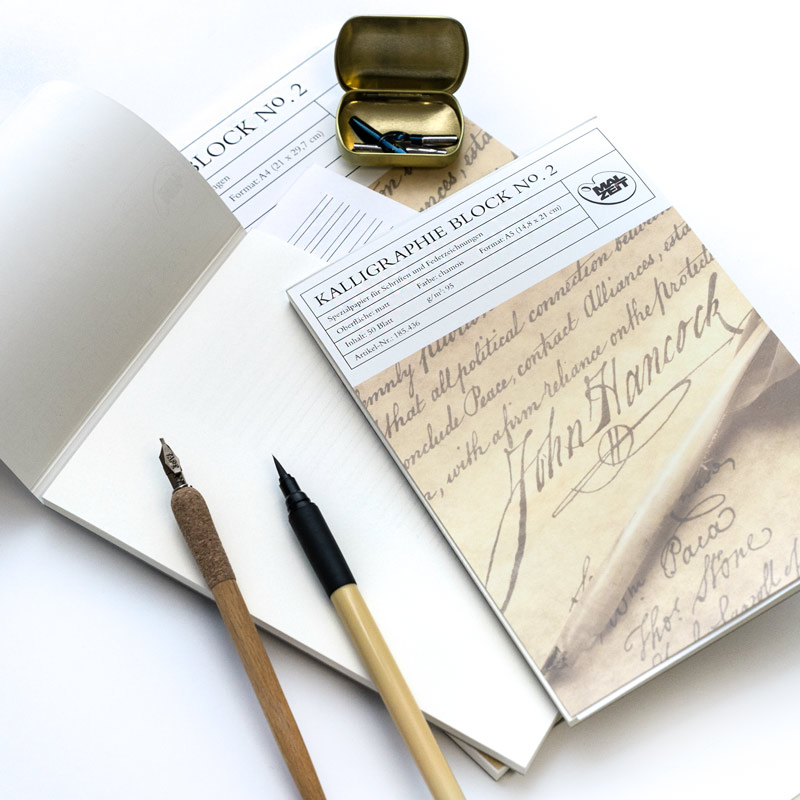 BLOCK No. 2
Format: A4 (21 x 29,7 cm)
KALLIGRAPHIE BLOCK No. 2
MAL
ZEIT
Spezialpapier für Schriften und Federzeichnungen
Oberfläche: matt Farbe: chamois Format: A5 (14,8 x 21 cm)
Inhalt: 50 Blatt g/m²: 95
Artikel-Nr.: 185.436
that all political connection between
conclude Peace, contract Alliances, esta
, with a firm reliance on the Protecti
John Hancock
Wm Paca
Thos. Stone